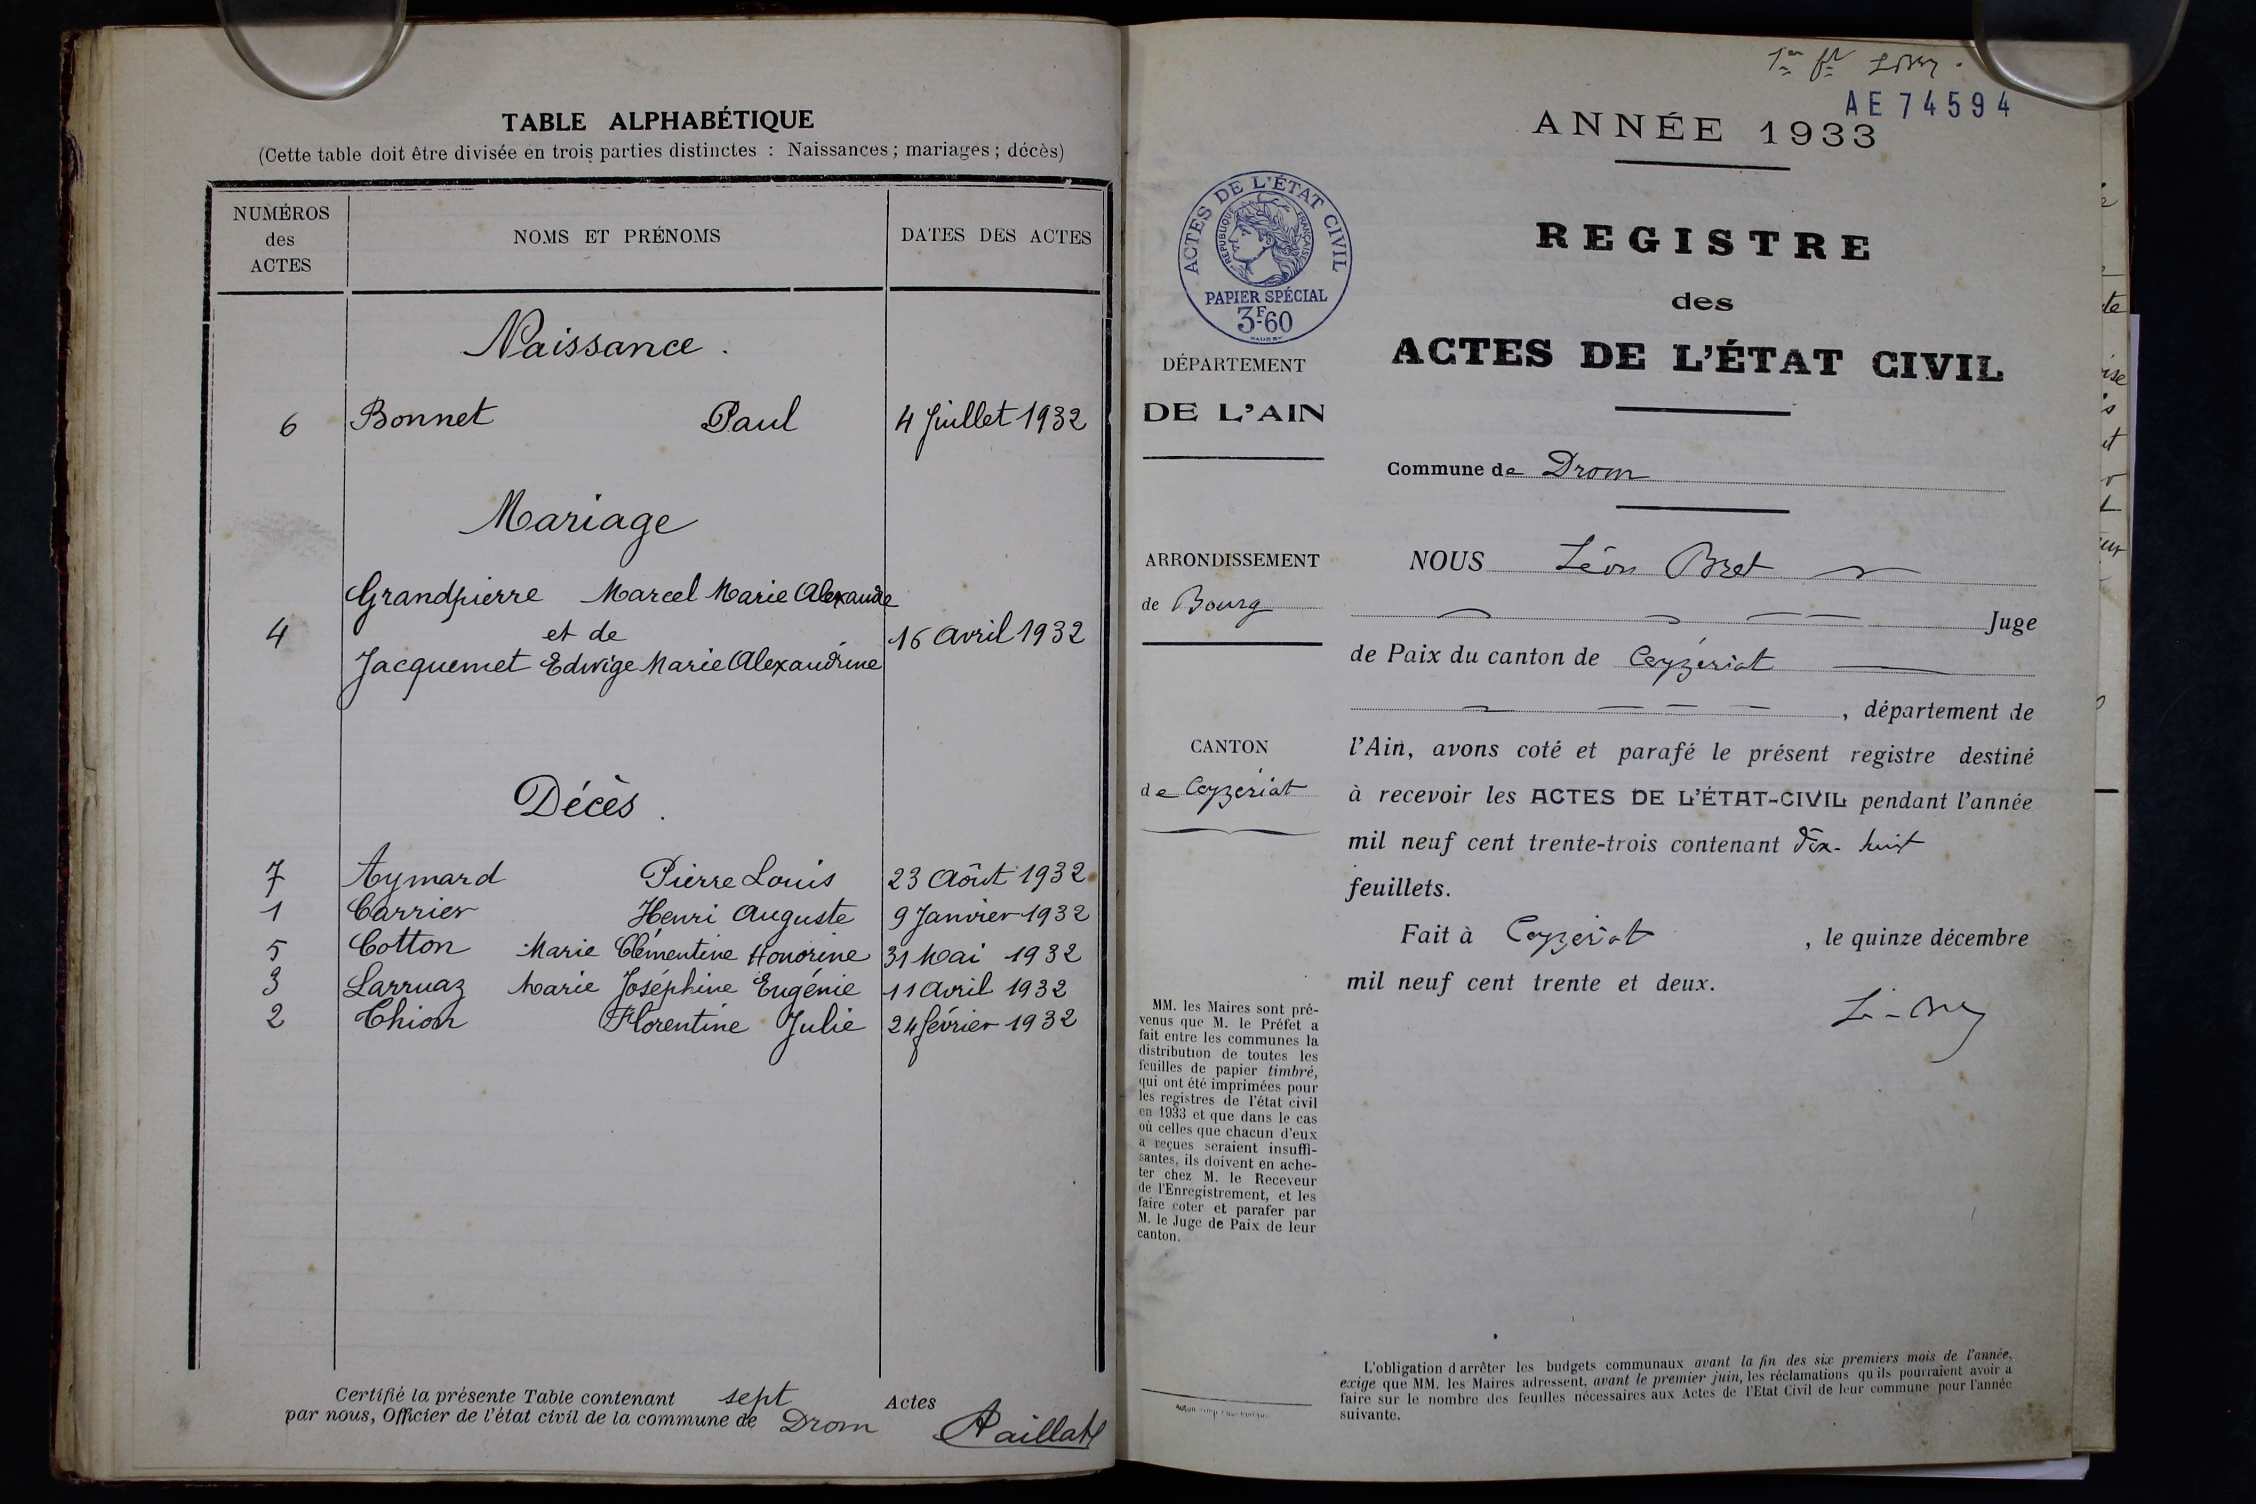 TABLE ALPHABÉTIQUE
(Cette table doit être divisée en trois parties distinctes : Naissances ; mariages ; décès)
NUMÉROS
des
ACTES
NOMS ET PRÉNOMS
DATES DES ACTES
Naissance.
6 Bonnet Paul 4 Juillet 1932
Mariage
Grandpierre Marcel Marie Alexandre
4 et de 16 Avril 1932
Jacquemet Edwige Marie Alexandrine
Décès.
7 Aymard Pierre Louis 23 Août 1932
1 Carrier Henri Auguste 9 Janvier 1932
5 Cotton Marie Clémentine Honorine 31 Mai 1932
3 Larruaz Marie Joséphine Eugénie 11 Avril 1932
2 Chion Florentine Julie 24 février 1932
Certifié la présente Table contenant sept Actes
par nous, Officier de l'état civil de la commune de Drom
Paillat
1er ft
AE 74594
ANNÉE 1933
ACTES DE L'ÉTAT CIVIL
RÉPUBLIQUE FRANÇAISE
PAPIER SPÉCIAL
3F.60
REGISTRE
des
ACTES DE L'ÉTAT CIVIL
DÉPARTEMENT
DE L'AIN
Commune de Drom
ARRONDISSEMENT
de Bourg
CANTON
de Ceyzériat
NOUS Léon Bret
Juge
de Paix du canton de Ceyzériat
, département de
l'Ain, avons coté et parafé le présent registre destiné
à recevoir les ACTES DE L'ÉTAT-CIVIL pendant l'année
mil neuf cent trente-trois contenant dix-huit
feuillets.
Fait à Ceyzériat , le quinze décembre
mil neuf cent trente et deux.
MM. les Maires sont pré-
venus que M. le Préfet a
fait entre les communes la
distribution de toutes les
feuilles de papier timbré,
qui ont été imprimées pour
les registres de l'état civil
en 1933 et que dans le cas
où celles que chacun d'eux
a reçues seraient insuffi-
santes, ils doivent en ache-
ter chez M. le Receveur
de l'Enregistrement, et les
faire coter et parafer par
M. le Juge de Paix de leur
canton.
L'obligation d'arrêter les budgets communaux avant la fin des six premiers mois de l'année,
exige que MM. les Maires adressent, avant le premier juin, les réclamations qu'ils pourraient avoir à
faire sur le nombre des feuilles nécessaires aux Actes de l'Etat Civil de leur commune pour l'année
suivante.